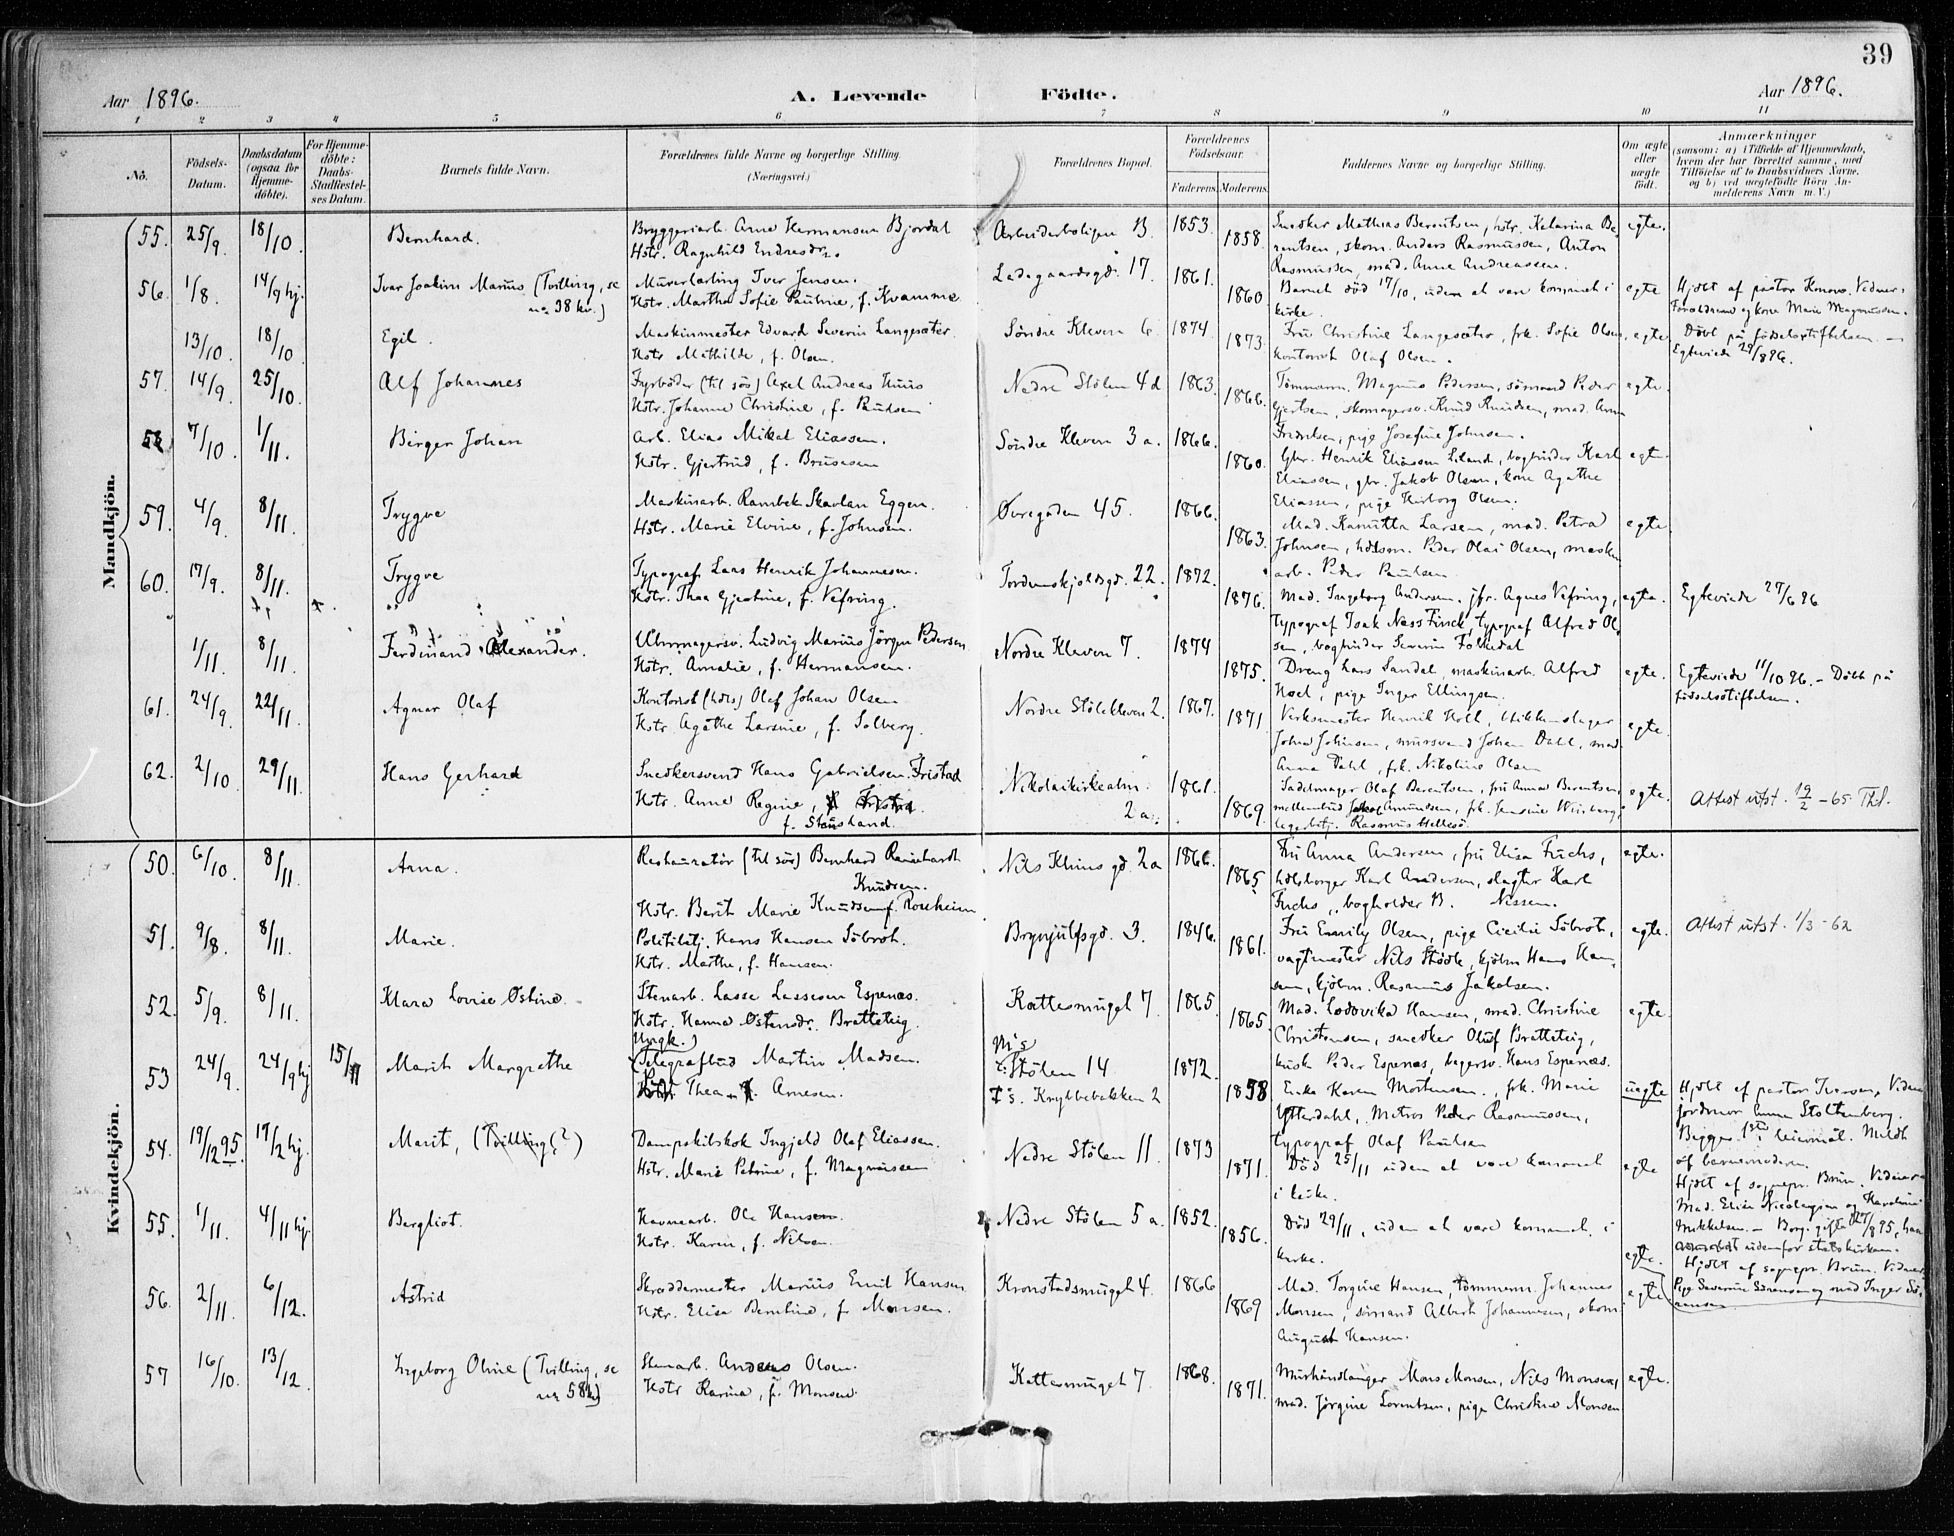 39
Aar 1896.
A. Levende Födte.
Aar 1896.
1 2 3 4 5 6 7 8 9 10 11
No.
Födsels-Datum.
Daabsdatum (ogsaa for Hjemme-döbte).
For Hjemme-döbte: Daabs-Stadfæstel-ses Datum.
Barnets fulde Navn.
Forældrenes fulde Navne og borgerlige Stilling. (Næringsvei.)
Forældrenes Bopæl.
Forældrenes Födselsaar.
Faderens. Moderens.
Faddernes Navne og borgerlige Stilling.
Om ægte eller uægte födt.
Anmærkninger
(saasom: a) i Tilfælde af Hjemmedaab,
hvem der har forrettet samme, med
Tilföielse af to Daabsvidners Navne,
og b) ved uægtefödte Börn An-
melderens Navn m. V.)
Mandkjön.
55. 25/9. 18/10. Bernhard.
Bryggeriarb. Arne Hermansen Bjordal
Hstr. Ragnhild Endresdr.
Arbeiderboligen B. 1853. 1858.
Snedker Mathias Berentsen, hstr. Katarina Be-
rentsen, skom. Anders Rasmussen, Anton
Rasmussen, mad. Anne Andreassen.
egte.
56. 1/8. 14/9 hj. Ivar Joakim Marius (Tvilling, se
no 38 kv.)
Murerlærling Iver Jensen.
Hstr. Martha Sofie Pauline, f. Kvamme
Ladegaardsgd. 17. 1861. 1860
Barnet död 17/10, uden at være kommet i
kirke.
egte
Hjdbt af pastor Konow. Vidner:
Forældrene og kone Marie Magnussen.
13/10. 18/10. Egil.
Maskinmester Edvard Severin Langesæter
Hstr. Mathilde, f. Olsen.
Söndre Kleven 6. 1874. 1873.
Fru Christine Langesæter, frk. Sofie Olsen,
kontorist Olaf Olsen.
egte
Döbt på födselsstiftelsen.
Egteviede 29/8 96.
57. 14/9. 25/10. Alf Johannes
Fyrböder (til sös) Axel Andreas Huus
Hstr. Johanne Christine, f. Paulsen
Nedre Stölen 4 d 1863. 1866.
Tömmerm. Magnus Pedersen, sömand Peder
Gjertsen, skomagersv. Knud Knudsen, mad. Anna
Fredriksen, pige Josefine Johnsen.
egte.
58. 7/10. 1/11. Birger Johan
Arb. Elias Mikal Eliassen.
Hstr. Gjertrud, f. Brusesen
Söndre Kleven 3 a. 1866. 1860.
Gbr. Henrik Eliassen Liland, bogbinder Karl
Eliassen, gbr. Jakob Olsen, kone Agathe
Eliassen, pige Herborg Olsen.
egte.
59. 4/9. 8/11. Trygve
Maskinarb. Rambek Skavlan Eggen.
Hstr. Marie Elvine, f. Johnsen.
Øvregaden 45. 1866. 1863.
Mad. Kanutta Larsen, mad. Petra
Johnsen, hdlsm. Peder Olai Olsen, maskin
arb. Peder Paulsen
egte.
60. 17/9. 8/11. Trygve
Typograf Lars Henrik Johannesen.
Hstr. Thea Gjertine, f. Vefring.
Tordenskjoldsgd. 22. 1872. 1876.
Mad. Ingeborg Andersen. jfr. Agnes Vefring,
typograf Isak Ness Finck, typograf Alfred Ol-
sen, bogbinder Severin Folkedal
egte.
Egteviede 27/6 96
1/11. 8/11. Ferdinand Alexander.
Uhrmagersv. Ludvig Marius Jörgen Pedersen
Hstr. Amalie, f. Hermansen.
Nordre Kleven 7. 1874 1875.
Dreng Lars Sandal, maskinarb. Alfred
Noel, pige Inger Ellingsen.
egte.
Egteviede 11/10 96. – Döbt på
födselsstiftelsen.
61. 24/9. 22/11. Agnar Olaf
Kontorist (hdls) Olaf Johan Olsen
Hstr. Agathe Larsine, f. Solberg.
Nordre Stölekleven 2. 1867. 1871
Verksmester Henrik Holt, blikkenslager
Johan Johnsen, mursvend Johan Dahl, mad.
Anna Dahl, frk. Nikoline Olsen
egte.
62. 2/10. 29/11. Hans Gerhard
Snedkersvend Hans Gabrielsen Fristad
Hstr. Anne Regine, f. Fristad.
f. Stausland.
Nikolaikirkealm. 2 a. 1861. 1869.
Sadelmager Olaf Berentsen, fru Anna Berentsen,
mellembud Jakob Amundsen, frk. Jensine Winberg,
Rasmus Hellesö
egte.
Attest utst. 19/2 – 65 Thl.
Kvindekjön.
50. 6/10. 8/11. Anna.
Restauratør (til sös) Bernhard Reinhardt
Knudsen.
Hstr. Berit Marie Knudsen f. Roseheim
Nils Klims gd. 2 a 1866. 1865.
Fru Anna Andersen, fru Elisa Fuchs,
hdlsborger Karl Andersen, slagter Karl
Fuchs, bogholder B. Nissen.
egte.
51. 9/8. 8/11. Marie.
Politibtj. Hans Hansen Söbrot.
Hstr. Marthe, f. Hansen.
Brynjulfsgd. 3. 1846. 1861.
Fru Emily Olsen, pige Cecilie Söbrot,
vagtmester Nils Stödle, kjöbm Hans Han-
sen, kjöbm. Rasmus Jakobsen.
egte.
Attest utst. 1/3 – 62
52. 5/9. 8/11. Klara Lovise Østine.
Stenarb. Lasse Lassesen Espenæs.
Hstr. Hanna Østensdr. Bratteteig.
Kattesmuget 7 1865 1865.
Mad. Lodovika Hansen, mad. Christine
Christensen, snedker Oluf Bratteteig,
kusk Peder Espenæs, bagersv. Hans Espenæs.
egte.
53 24/9. 24/9 hj 15/11 Marit Margrethe
Ungk.)
Telegrafbud Martin Madsen.
Pige Thea Arnesen.
M's Stölen 14
F's. Krybbebakken 2 1872. 1858
Enke Karen Mortensen, frk. Marie
Ytterdahl, Matros Peder Rasmussen,
typograf Olaf Paulsen
uegte
Hjdbt af pastor Iversen, Vidne
jordmor Anna Stoltenberg.
Begges 1ste leiermål. Meldt
af barnemoderen.
54. 19/12 95. 17/2 hj. Marit, (Tvilling?)
Dampskibskok Ingjeld Olaf Eliassen.
Hstr. Marie Petrine, f. Magnussen
Nedre Stölen 11. 1873 1871.
Död 25/11 uden at være kommet
i kirke.
egte
Hjdbt af sognepr. Brun. Vidner
Mad. Elise Nicolaysen og Karoline
Mikkelsen. – Borg. gifte 27/8 95, har
udenfor statskirken.
55. 1/11. 4/11 hj. Bergliot.
Havnearb. Ole Hansen.
Hstr. Karen, f. Nilsen.
Nedre Stölen 5 a. 1852. 1856.
Död 29/11, uden at være kommet i
kirke.
egte.
Hjdbt af sognepr. Brun. Vidner
Pige Severine Sörensen og mad Inger Sö-
rensen
56. 2/11. 6/12. Astrid
Skreddermester Marius Emil Hansen
Hstr. Elisa Berntine, f. Monsen.
Kronstadsmuget 4. 1866 1869
Mad. Torgine Hansen, tömmerm. Johannes
Monsen, sömand Albert Johannesen, skom
August Hansen.
egte
57 16/10. 13/12. Ingeborg Oline (Tvilling, se
no 58 k)
Stenarb. Andreas Olsen.
Hstr. Karina, f. Monsen.
Kattesmuget 7. 1868. 1871.
Murhåndlanger Mons Monsen, Nils Monsen,
mad. Jörgine Lorentsen, pige Christine Monsen
egte.